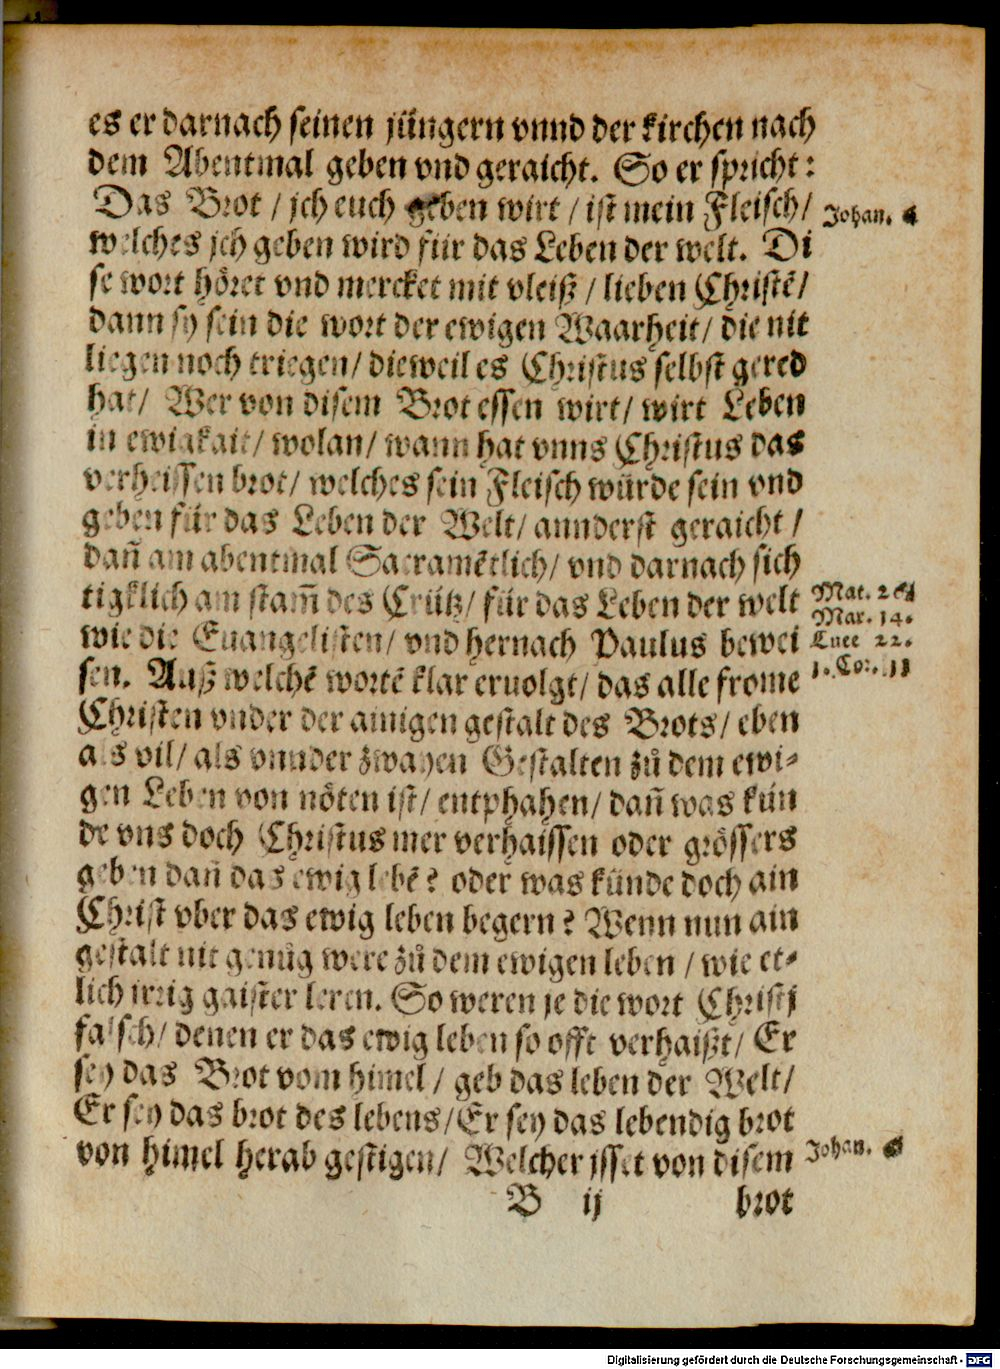 es er darnach seinen jüngern vnnd der kirchen nach
dem Abentmal geben vnd geraicht. So er spricht:
Das Brot / jch euch geben wirt / ist mein Fleisch / Johan. 6
welches jch geben wird für das Leben der welt. Di
se wort höret vnd mercket mit vleiß / lieben Christē /
dann sy sein die wort der ewigen Waarheit / die nit
liegen noch triegen / dieweil es Christus selbst gered
hat / Wer von disem Brot essen wirt / wirt Leben
in ewigkait / wolan / wann hat vnns Christus das
verheissen brot / welches sein Fleisch würde sein vnd
geben für das Leben der Welt / annderst geraicht /
dañ am abentmal Sacramētlich / vnd darnach sich
tigklich am stam̃ des Crütz / für das Leben der welt Mat. 26
wie die Euangelisten / vnd hernach Paulus bewei Mar. 14. Luce 22.
sen. Auß welchē wortē klar eruolgt / das alle frome 1. Cor. 11
Christen vnder der ainigen gestalt des Brots / eben
als vil / als vnnder zwayen Gestalten zů dem ewi-
gen Leben von nöten ist / entphahen / dañ was kün
de vns doch Christus mer verhaissen oder grössers
geben dañ das ewig lebē? oder was künde doch ain
Christ vber das ewig leben begern? Wenn nun ain
gestalt nit genůg were zů dem ewigen leben / wie et-
lich irrig gaister leren. So weren je die wort Christj
falsch / denen er das ewig leben so offt verhaißt / Er
sey das Brot vom himel / geb das leben der Welt /
Er sey das brot des lebens / Er sey das lebendig brot
von himel herab gestigen / Welcher jsset von disem Johan. 6
B ij brot
Digitalisierung gefördert durch die Deutsche Forschungsgemeinschaft - DFG